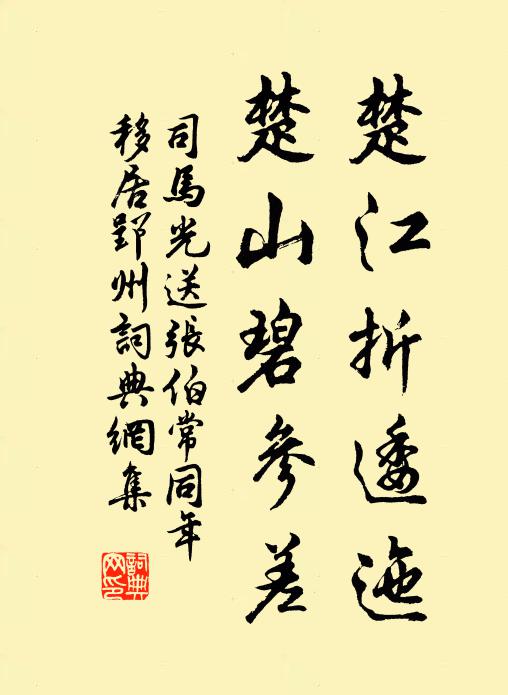 楚江折逶迤
楚山碧參差
司馬光送張伯常同年
移居郢州詞典網集
詞典
网印